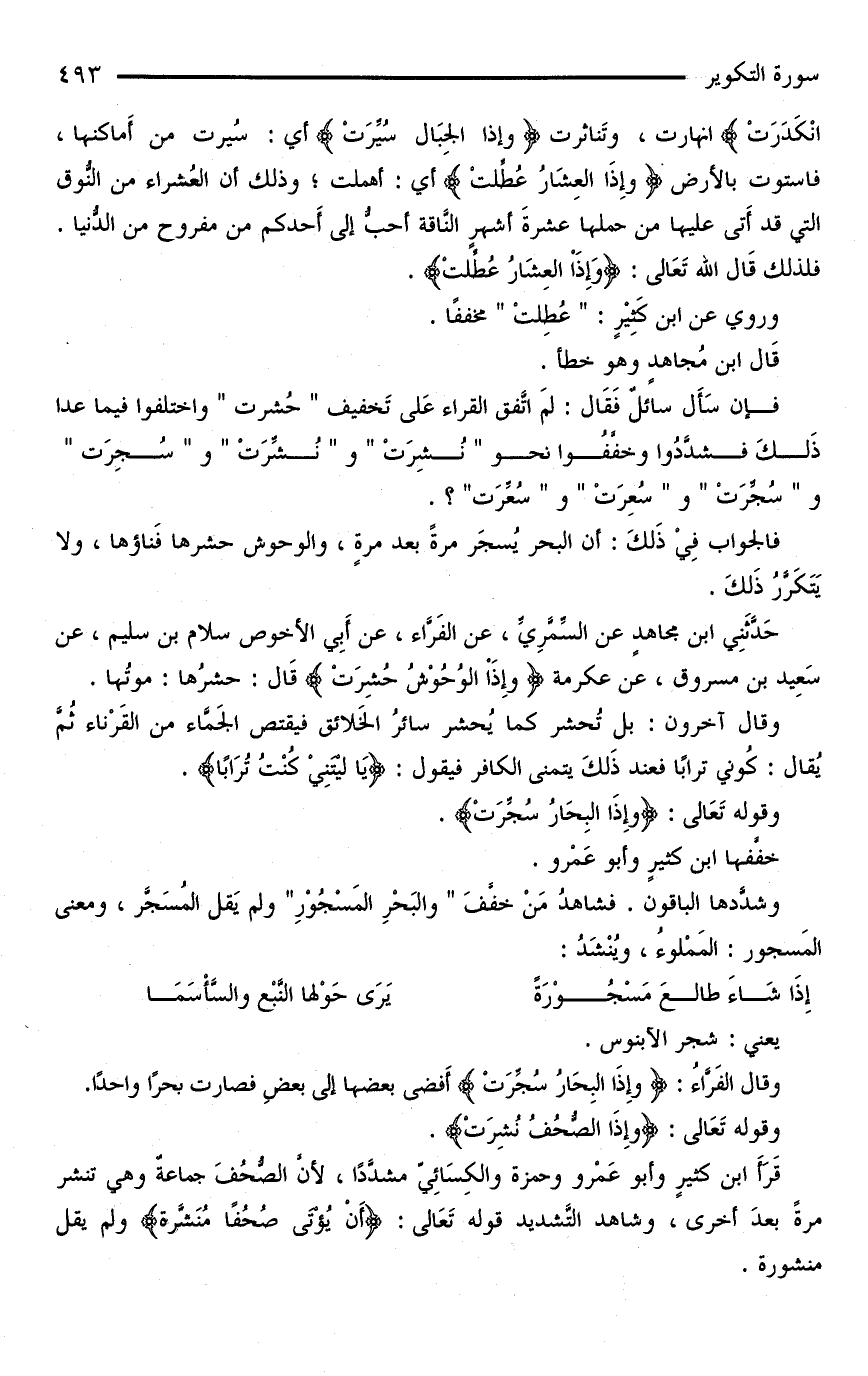 سورة التكوير ٤٩٣
انْكَدَرَتْ ﴾ انهارت ، وتَناثرت ﴿ وإذا الجِبَال سُيِّرَتْ ﴾ أي : سُيرت من أَماكنها ،
فاستوت بالأرض ﴿ وإِذَا العِشَارُ عُطِّلتْ ﴾ أي : أهملت ؛ وذلك أن العُشراء من النُّوق
التي قد أَتى عليها من حملها عشرةَ أشهرٍ النَّاقة أحبُّ إلى أَحدكم من مفروح من الدُّنيا .
فلذلك قَال الله تَعَالى : ﴿وَإِذَاْ العِشَارُ عُطِّلتْ﴾ .
وروي عن ابن كَثِيْرٍ : " عُطِلتْ " مخففًا .
قَال ابن مُجاهدٍ وهو خطأ .
فإن سَأَل سائلٌ فَقَال : لمَ اتَّفق القراء عَلى تَخفيف " حُشرت " واختلفوا فيما عدا
ذَلكَ فشدَّدُوا وخفَّفُوا نحو " نُشِرَتْ " و " نُشِّرَتْ " و " سُجِرَت "
و " سُجِّرَتْ " و " سُعِرَتْ " و " سُعِّرَت" ؟ .
فالجواب فِيْ ذَلكَ : أن البحر يُسجَر مرةً بعد مرةٍ ، والوحوش حشرها فَناؤها ، ولا
يَتَكَرَّرُ ذَلكَ .
حَدَّثَنِي ابن مجاهدٍ عن السِّمَّرِيِّ ، عن الفَرَّاء ، عن أَبِي الأخوص سلام بن سليم ، عن
سَعِيد بن مسروق ، عن عكرمة ﴿ وإِذَاْ الوُحُوْشُ حُشِرَتْ ﴾ قَال : حشرُها : موتُها .
وقال آخرون : بل تُحشر كما يُحشر سائرُ الخَلائق فيقتص الجَمَّاء من القَرْناء ثُمَّ
يُقال : كُوني ترابًا فعند ذَلكَ يتمنى الكافر فيقول : ﴿يَا ليْتَنِيْ كُنْتُ تُرَابًا﴾ .
وقوله تَعَالى : ﴿وإِذَا البِحَارُ سُجِّرَتْ﴾ .
خفَّفها ابن كثيرٍ وأبو عَمْرو .
وشدَّدها الباقون . فشاهدُ مَنْ خفَّفَ " والبَحْرِ المَسْجُوْرِ" ولم يَقل المُسَجَّر ، ومعنى
المَسجور : المَمْلوءُ ، ويُنْشَدُ :
إِذَا شَاءَ طالعَ مَسْجُوْرَةً يَرَى حَوْلها النَّبْع والسَّأْسَمَا
يعني : شجر الآبنوس .
وقال الفَرَّاءُ : ﴿ وإِذَا البِحَارُ سُجِّرَتْ ﴾ أَفضى بعضها إلى بعضٍ فصارت بحرًا واحدًا.
وقوله تَعَالى : ﴿وإِذَا الصُّحُفُ نُشِرَتْ﴾ .
قَرَأَ ابن كثيرٍ وأبو عَمْرو وحمزة والكِسَائِيّ مشدَّدًا ، لأنَّ الصُّحُفَ جماعةٌ وهي تنشر
مرةً بعدَ أخرى ، وشاهد التَّشديد قوله تَعَالى : ﴿أَنْ يُؤْتَى صُحُفًا مُنَشَّرة﴾ ولم يقل
منشورة .